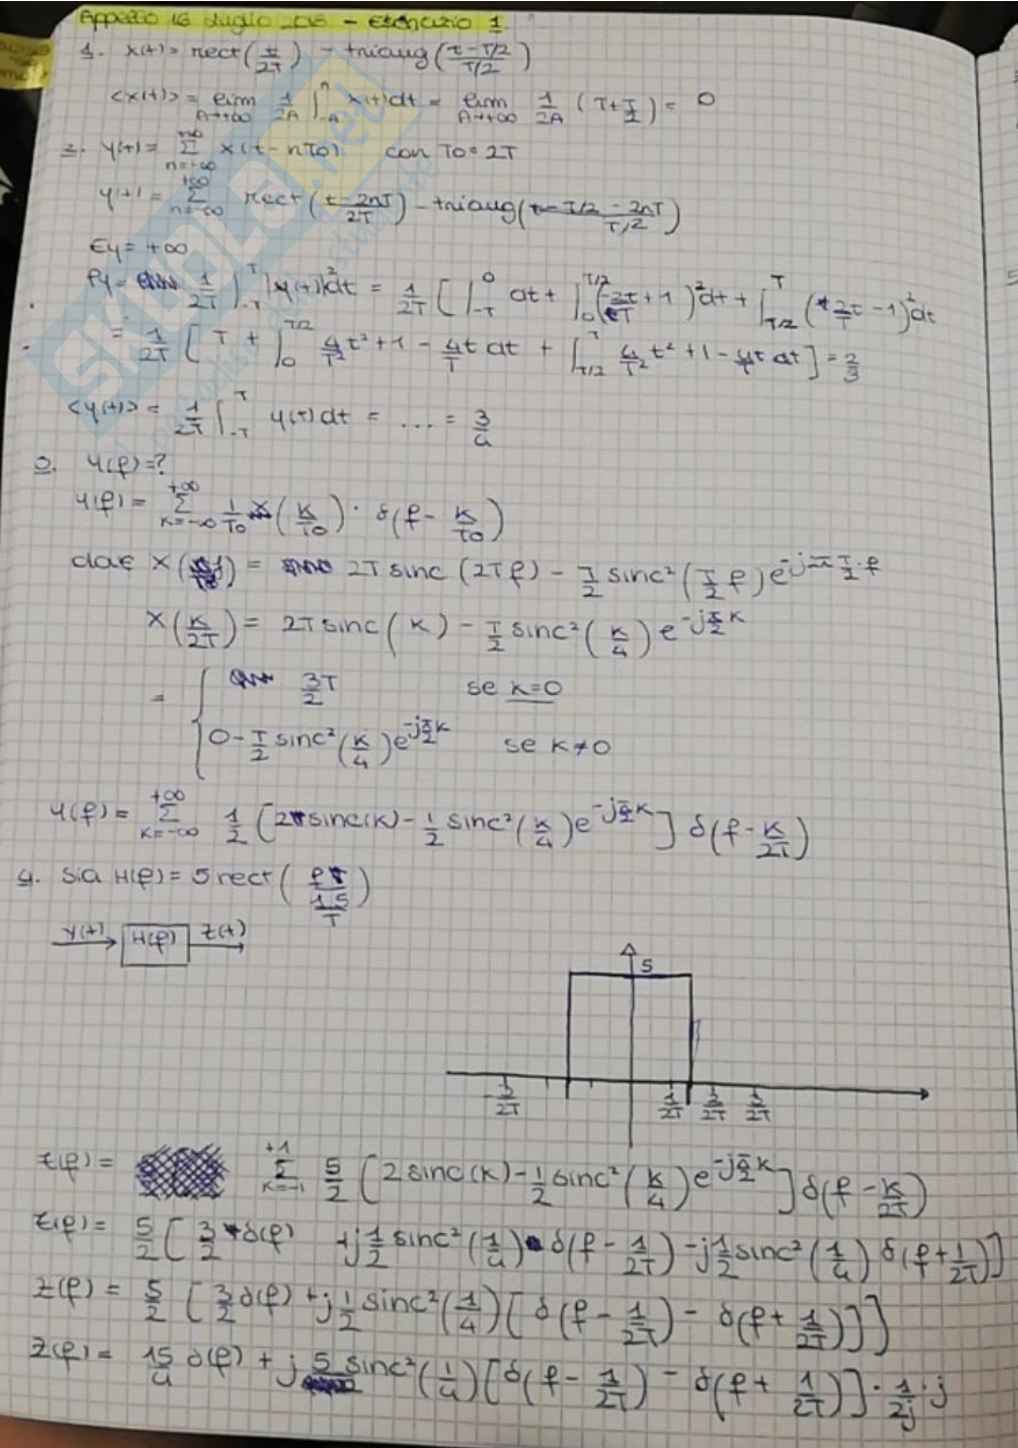 Appello 16 Luglio 2015 - Esercizio 1
1. x(t) = rect(t/2T) - triang((t-T/2)/(T/2))
<x(t)> = lim A→+∞ 1/2A ∫_-A^A x(t)dt = lim A→+∞ 1/2A (T+T/2) = 0
2. y(t) = Σ_{n=-∞}^{+∞} x(t-nT0) con T0=2T
y(t) = Σ_{n=-∞}^{+∞} rect((t-2nT)/2T) - triang((t-T/2-2nT)/(T/2))
Ey = +∞
Py = 1/2T ∫_-T^T |y(t)|²dt = 1/2T [ ∫_-T^0 dt + ∫_0^{T/2} (-2t/T+1)²dt + ∫_{T/2}^T (2/T t-1)²dt
= 1/2T [ T + ∫_0^{T/2} 4/T² t²+1 - 4/T t dt + ∫_{T/2}^T 4/T² t²+1 - 4/T t dt ] = 2/3
<y(t)> = 1/2T ∫_-T^T y(t)dt = ... = 3/4
3. Y(f)=?
Y(f) = Σ_{k=-∞}^{+∞} 1/T0 X(k/T0) · δ(f - k/T0)
dove X(f) = 2T sinc(2Tf) - T/2 sinc²(T/2 f) e^{-j2π T/2·f}
X(k/2T) = 2T sinc(k) - T/2 sinc²(k/4) e^{-jπ/2 k}
= { 3T/2 se k=0
0 - T/2 sinc²(k/4) e^{-jπ/2 k} se k≠0
Y(f) = Σ_{k=-∞}^{+∞} 1/2 [2 sinc(k) - 1/2 sinc²(k/4) e^{-jπ/2 k}] δ(f - k/2T)
4. Sia H(f) = 5 rect(f/(1.5/T))
y(t) H(f) z(t)
5
-3/2T 1/2T 2/2T 3/2T
Z(f) = Σ_{k=-1}^{+1} 5/2 [2 sinc(k) - 1/2 sinc²(k/4) e^{-jπ/2 k}] δ(f - k/2T)
Z(f) = 5/2 [3/2 δ(f) + j 1/2 sinc²(1/4) δ(f - 1/2T) - j 1/2 sinc²(1/4) δ(f + 1/2T)]
Z(f) = 5/2 [3/2 δ(f) + j 1/2 sinc²(1/4) [δ(f - 1/2T) - δ(f + 1/2T)]]
Z(f) = 15/4 δ(f) + j 5/2 sinc²(1/4) [δ(f - 1/2T) - δ(f + 1/2T)] · 1/2j · j
SKUOLA.net